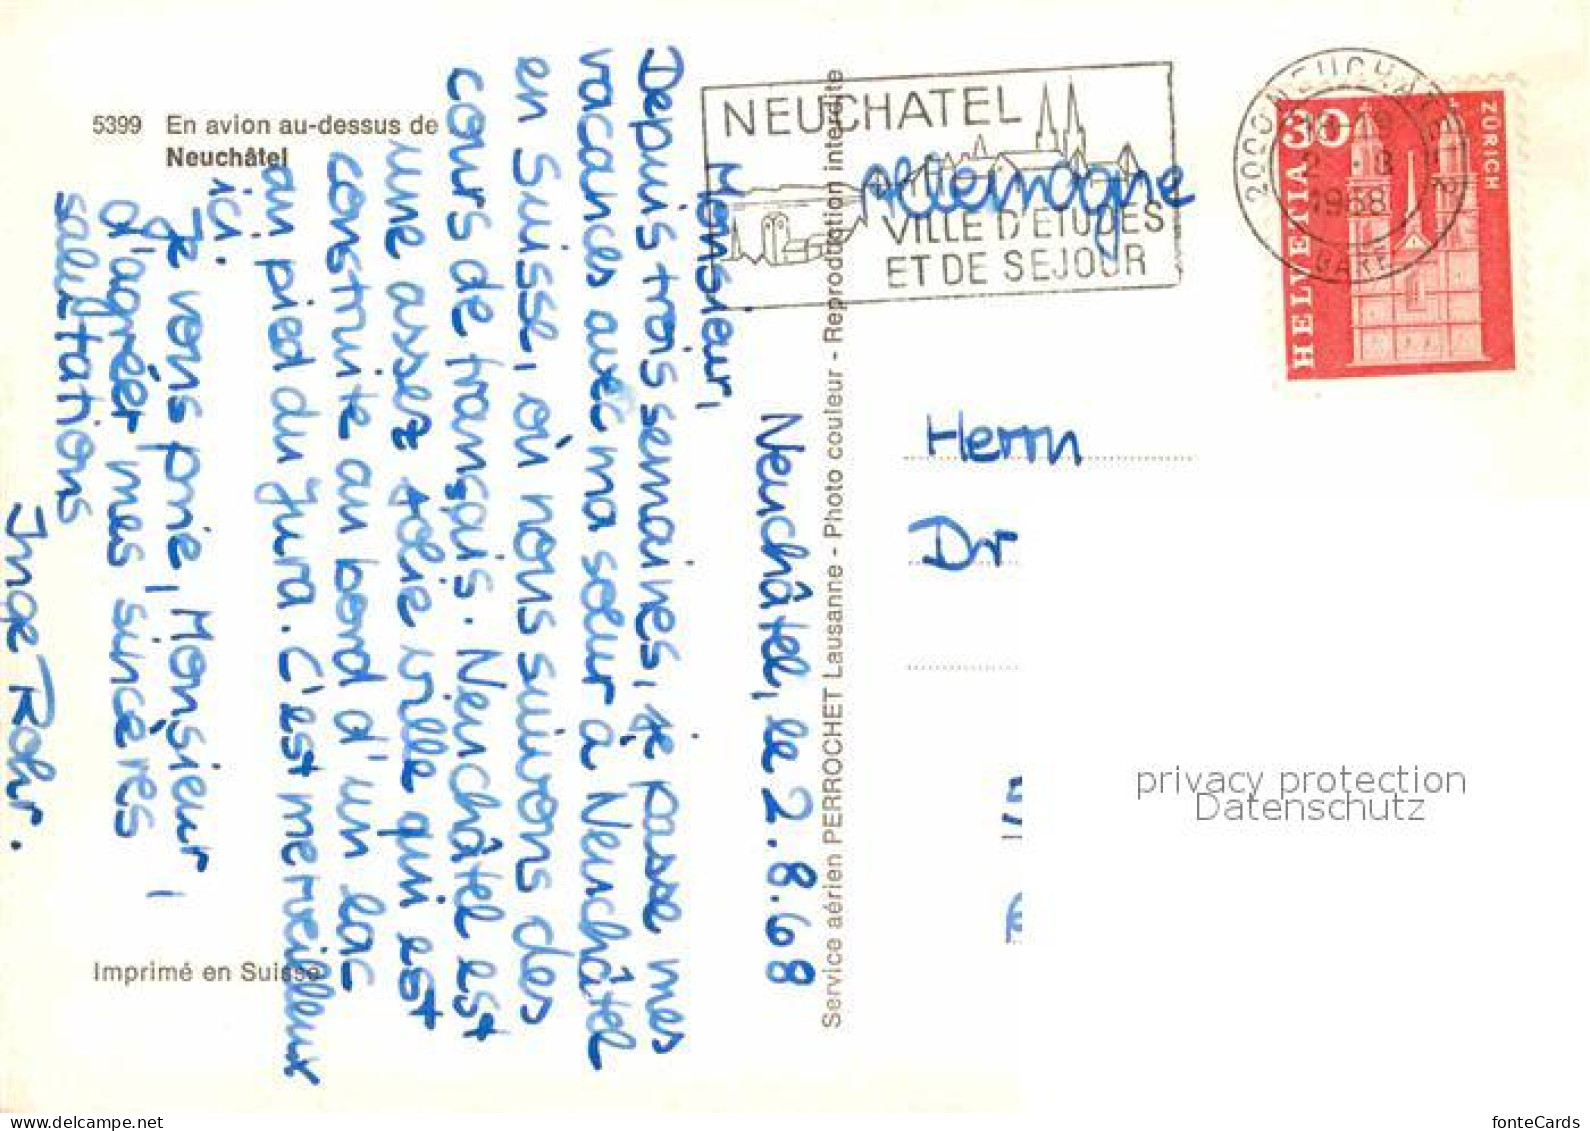 5399 En avion au-dessus de
Neuchâtel
Neuchâtel, le 2.8.68
Monsieur,
Depuis trois semaines, je passe mes
vacances avec ma sœur à Neuchâtel
en Suisse, où nous suivons des
cours de français. Neuchâtel est
une assez jolie ville qui est
construite au bord d'un lac
au pied du Jura. C'est merveilleux
ici.
Je vous prie, Monsieur,
d'agréer mes sincères
salutations
Inge Rohr.
Imprimé en Suisse
Service aérien PERROCHET Lausanne - Photo couleur - Reproduction interdite
NEUCHATEL
VILLE D'ETUDES
ET DE SEJOUR
Allemagne
2000 NEUCHATEL 2
1968
GARE
HELVETIA
30
ZÜRICH
Herrn
Dr
privacy protection
Datenschutz
www.delcampe.net
fonteCards